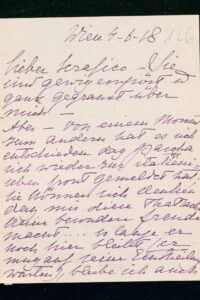 Wien 4-6-18
Lieber Serafico - Sie
sind gewiss empört u
ganz gegraust über
mich -
Aber - von einem Moment
zum andern hat es sich
entschieden dass
sich wieder zur italieni-
schen Front gemeldet hat.
Sie können sich denken
dass mir diese Thatsache
keine besondere Freude
macht... so lange er
noch hier bleibt, er
muss auf seine Eintheilung
warten, bleibe ich auch